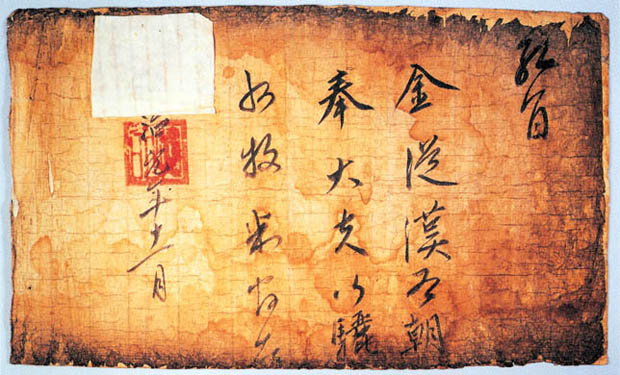 教旨
金從漢爲朝
奉大夫行驪
州牧判官者
年十 月